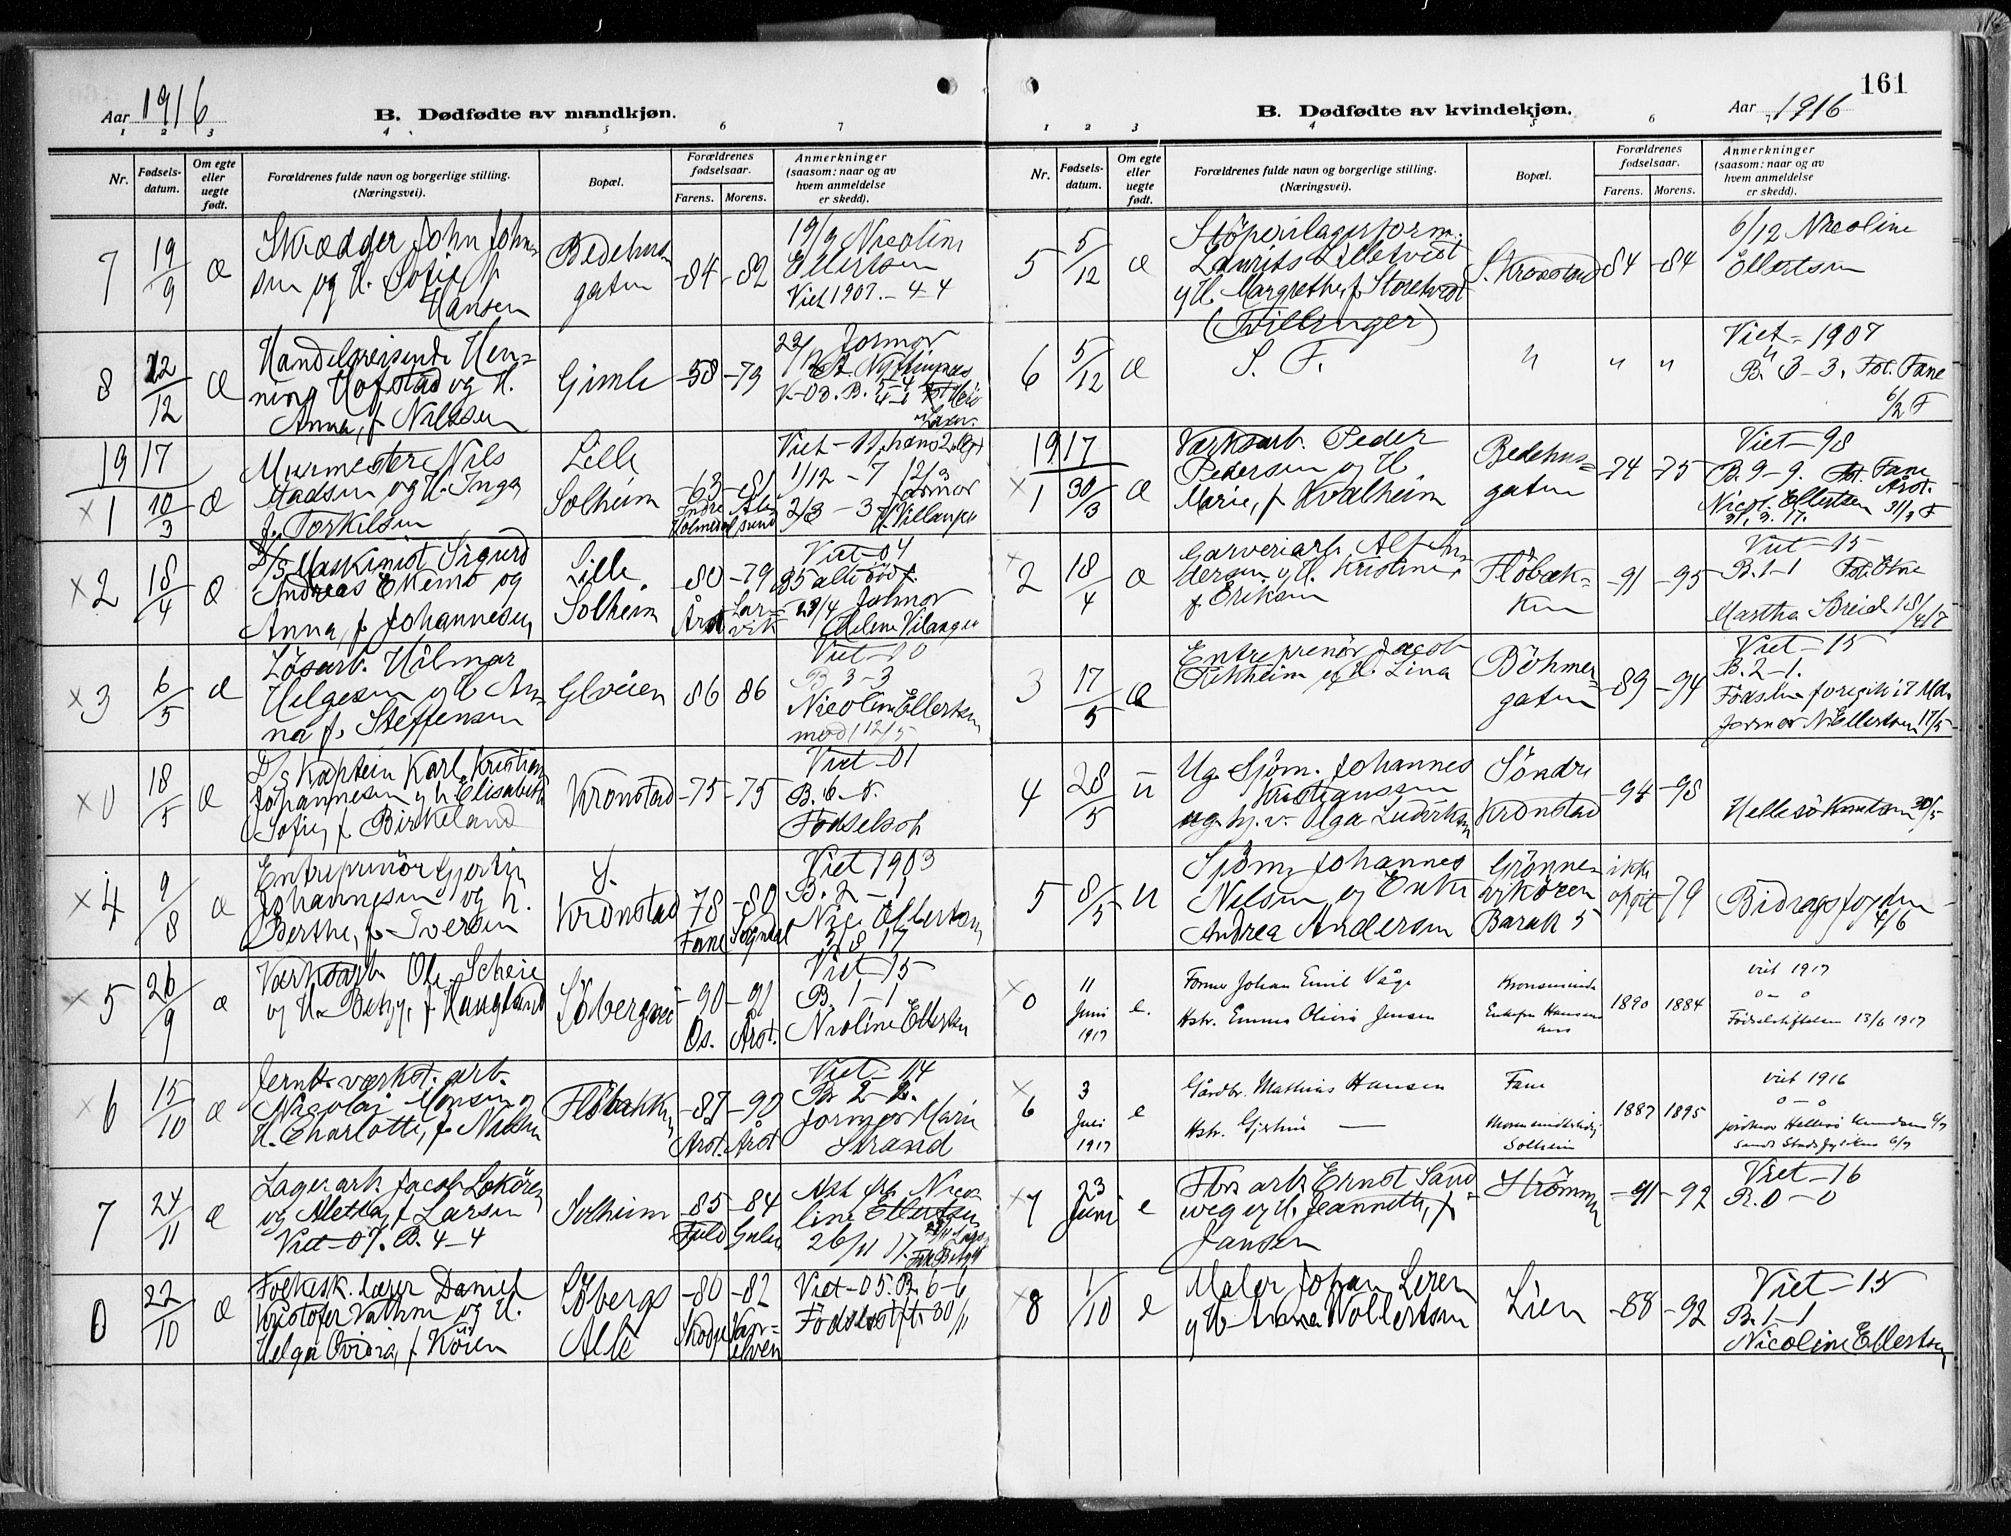 161
Aar 1916
B. Dødfødte av mandkjøn.
1 2 3 4 5 6 7
Nr.
Fødsels-
datum.
Om egte
eller
uegte
født.
Forældrenes fulde navn og borgerlige stilling.
(Næringsvei).
Bopæl.
Forældrenes
fødselsaar.
Farens. Morens.
Anmerkninger
(saasom: naar og av
hvem anmeldelse
er skedd).
7 19/9 æ
Skrædder John John-
sen og H. Sofie f.
Hansen
Bedehus-
gaten
-84 -82
19/9 Nicoline
Ellertsen
Viet 1907. - 4-4
8 12/12 æ
Handelsreisende Hen-
ning Hofstad og H.
Anna, f. Nilssen
Gimle
-58 -79
Jormor
1917
x1 10/3 æ
Murmester Nils
Stadsen og H. Inga
f. Torkilsen
Lille
Solheim
-63 -81
x2 18/4 æ
D/S Maskinist Sigurd
Andreas Ekemo og
Anna, f. Johannesen
Lille
Solheim
-80 -79
Årst. Lar-
vik
Viet -04
Jormor
x3 6/5 æ
Løsarb. Hilmar
Helgesen og H. An-
na f. Steffensen
Glveien
86 86
Viet -10
B 3-3
Nicoline Ellertsen
x0 18/5 æ
D/S Kaptein Karl Kristian
Johannesen og H. Elisabeth
Sofie, f. Birkeland
Kronstad
-75 -75
Viet -01
B. 6-5.
x4 9/8 æ
Entreprenør Gjertin
Johannesen og H.
Berthe, f. Iversen
S.
Kronstad
78 -80
Fane Sogndal
Viet 1903
B. 2-1
Nic. Ellertsen
x5 26/9 æ
Værksarb. Ole Scheie
og H. Betzy, f. Haugland
Söbergvei
-90 -91
Os. Årst.
Viet -15
B. 1-1
Nicoline Ellertsen
x6 15/10 æ
Jernb. værkst. arb.
Nicolai Monsen og
H. Charlotte, f. Nilsen
Flöbakken
-87 -90
Årst. Årst
Viet -14
B. 2-2.
Jormor Marie
Strand
7 24/11 æ
Lagerarb. Jacob Lokören
og Aletta, f. Larsen
Viet -07. B. 4-4
Solheim
-85 -84
Nico-
line Ellertsen
26/11 17.
0 22/10 æ
Folkesk. lærer Daniel
Kristofer Vathne og H.
Helga Ovidia, f. Köien
Söbergs
Alle
-80 -82
Viet -05. B. 6-6
Födselsstift. 30/11
Aar 1916
B. Dødfødte av kvindekjøn.
1 2 3 4 5 6 7
Nr.
Fødsels-
datum.
Om egte
eller
uegte
født.
Forældrenes fulde navn og borgerlige stilling.
(Næringsvei).
Bopæl.
Forældrenes
fødselsaar.
Farens. Morens.
Anmerkninger
(saasom: naar og av
hvem anmeldelse
er skedd).
5 5/12 æ
Laurits Lilletvedt
og H. Margrethe, f. Storetvedt
(Tvillinger)
S. Kronstad
84 -84
6/12 Nicoline
Ellertsen
6 5/12 æ
S. F.
" " "
Viet - 1907
B. 3-3. Fst. Fane
1917
x1 30/3 æ
Værksarb. Peder
Pedersen og H
Marie, f. Kvalheim
Bedehus-
gaten
-74 -75
Viet -98
B. 9-9. Fane
Årst.
Nicol. Ellertsen 31/3
31.3.17.
x2 18/4 æ
Garveriarb. Alf An-
dersen og H. Kristine,
f. Eriksen
Flöbak-
ken
-91 -95
Viet -15
B. 1-1
Martha Breid 18/4 17
3 17/5 æ
Entreprenör Jacob
og H. Lina
Böhmer-
gaten
-89 -94
Viet -15
B. 2-1.
Jormor N. Ellertsen 17/5
4 28/5 u
Ug. Sjöm. Johannes
Kristianssen
ug. hj. v. Olga Ludviksen
Söndre
Kronstad
-94 -98
Hellesö Knutsen 30/5
5 8/5 u
Sjöm. Johannes
Nilsen og Enke
Andrea Andersen
Grönne-
vikören
Barak 5
ikke
opgit 79
Bidragsfogden
4/6
x0 11 Juni 1917 e.
Former Johan Emil Våge
Hstr. Emma Olivia Jensen
1890 1884
viet 1917
0 - 0
Fødselstiftelsen 13/6 1917
x6 3 Juli 1917 e
Gårdbr. Mathias Hansen
Hstr. Gjertine —
Fane
Solheim
1887 1895
viet 1916
0 - 0
x7 23 Juni e
arb. Ernst Sand-
weg og H. Jeannette, f.
Jansen
Strömmen
-91 -92
Viet -16
B. 0-0
x8 1/10 e
Maler Johan Leren
og H. Anna Vollertsen
Lien
-88 -92
Viet -15
B. 1-1
Nicoline Ellertsen